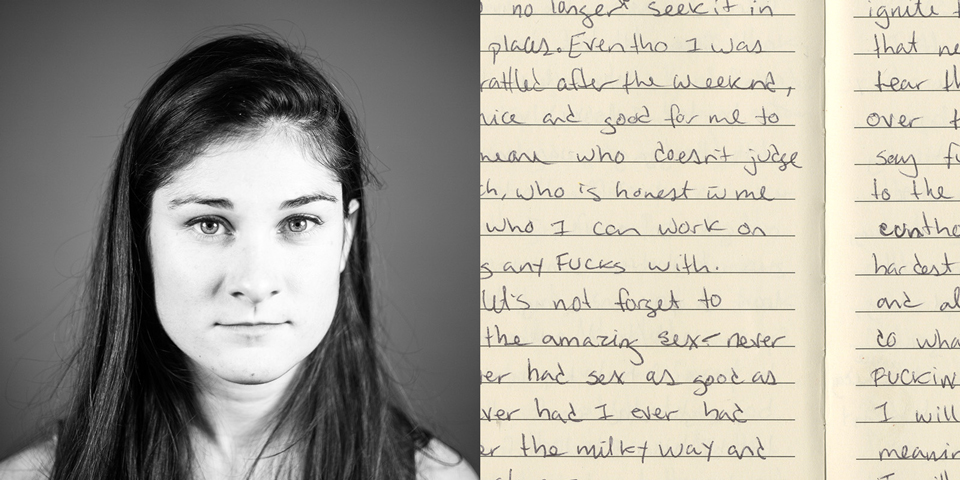 no longer seek it in
places. Eventho I was
rattled after the weeknd,
nice and good for me to
who doesn't judge
who is honest w me
who I can work on
any FUCKS with.
Let's not forget to
the amazing sex - never
had sex as good as
had I ever had
the milky way and
ignite
that
tear
over
say
to the
hardest
and
do
I will